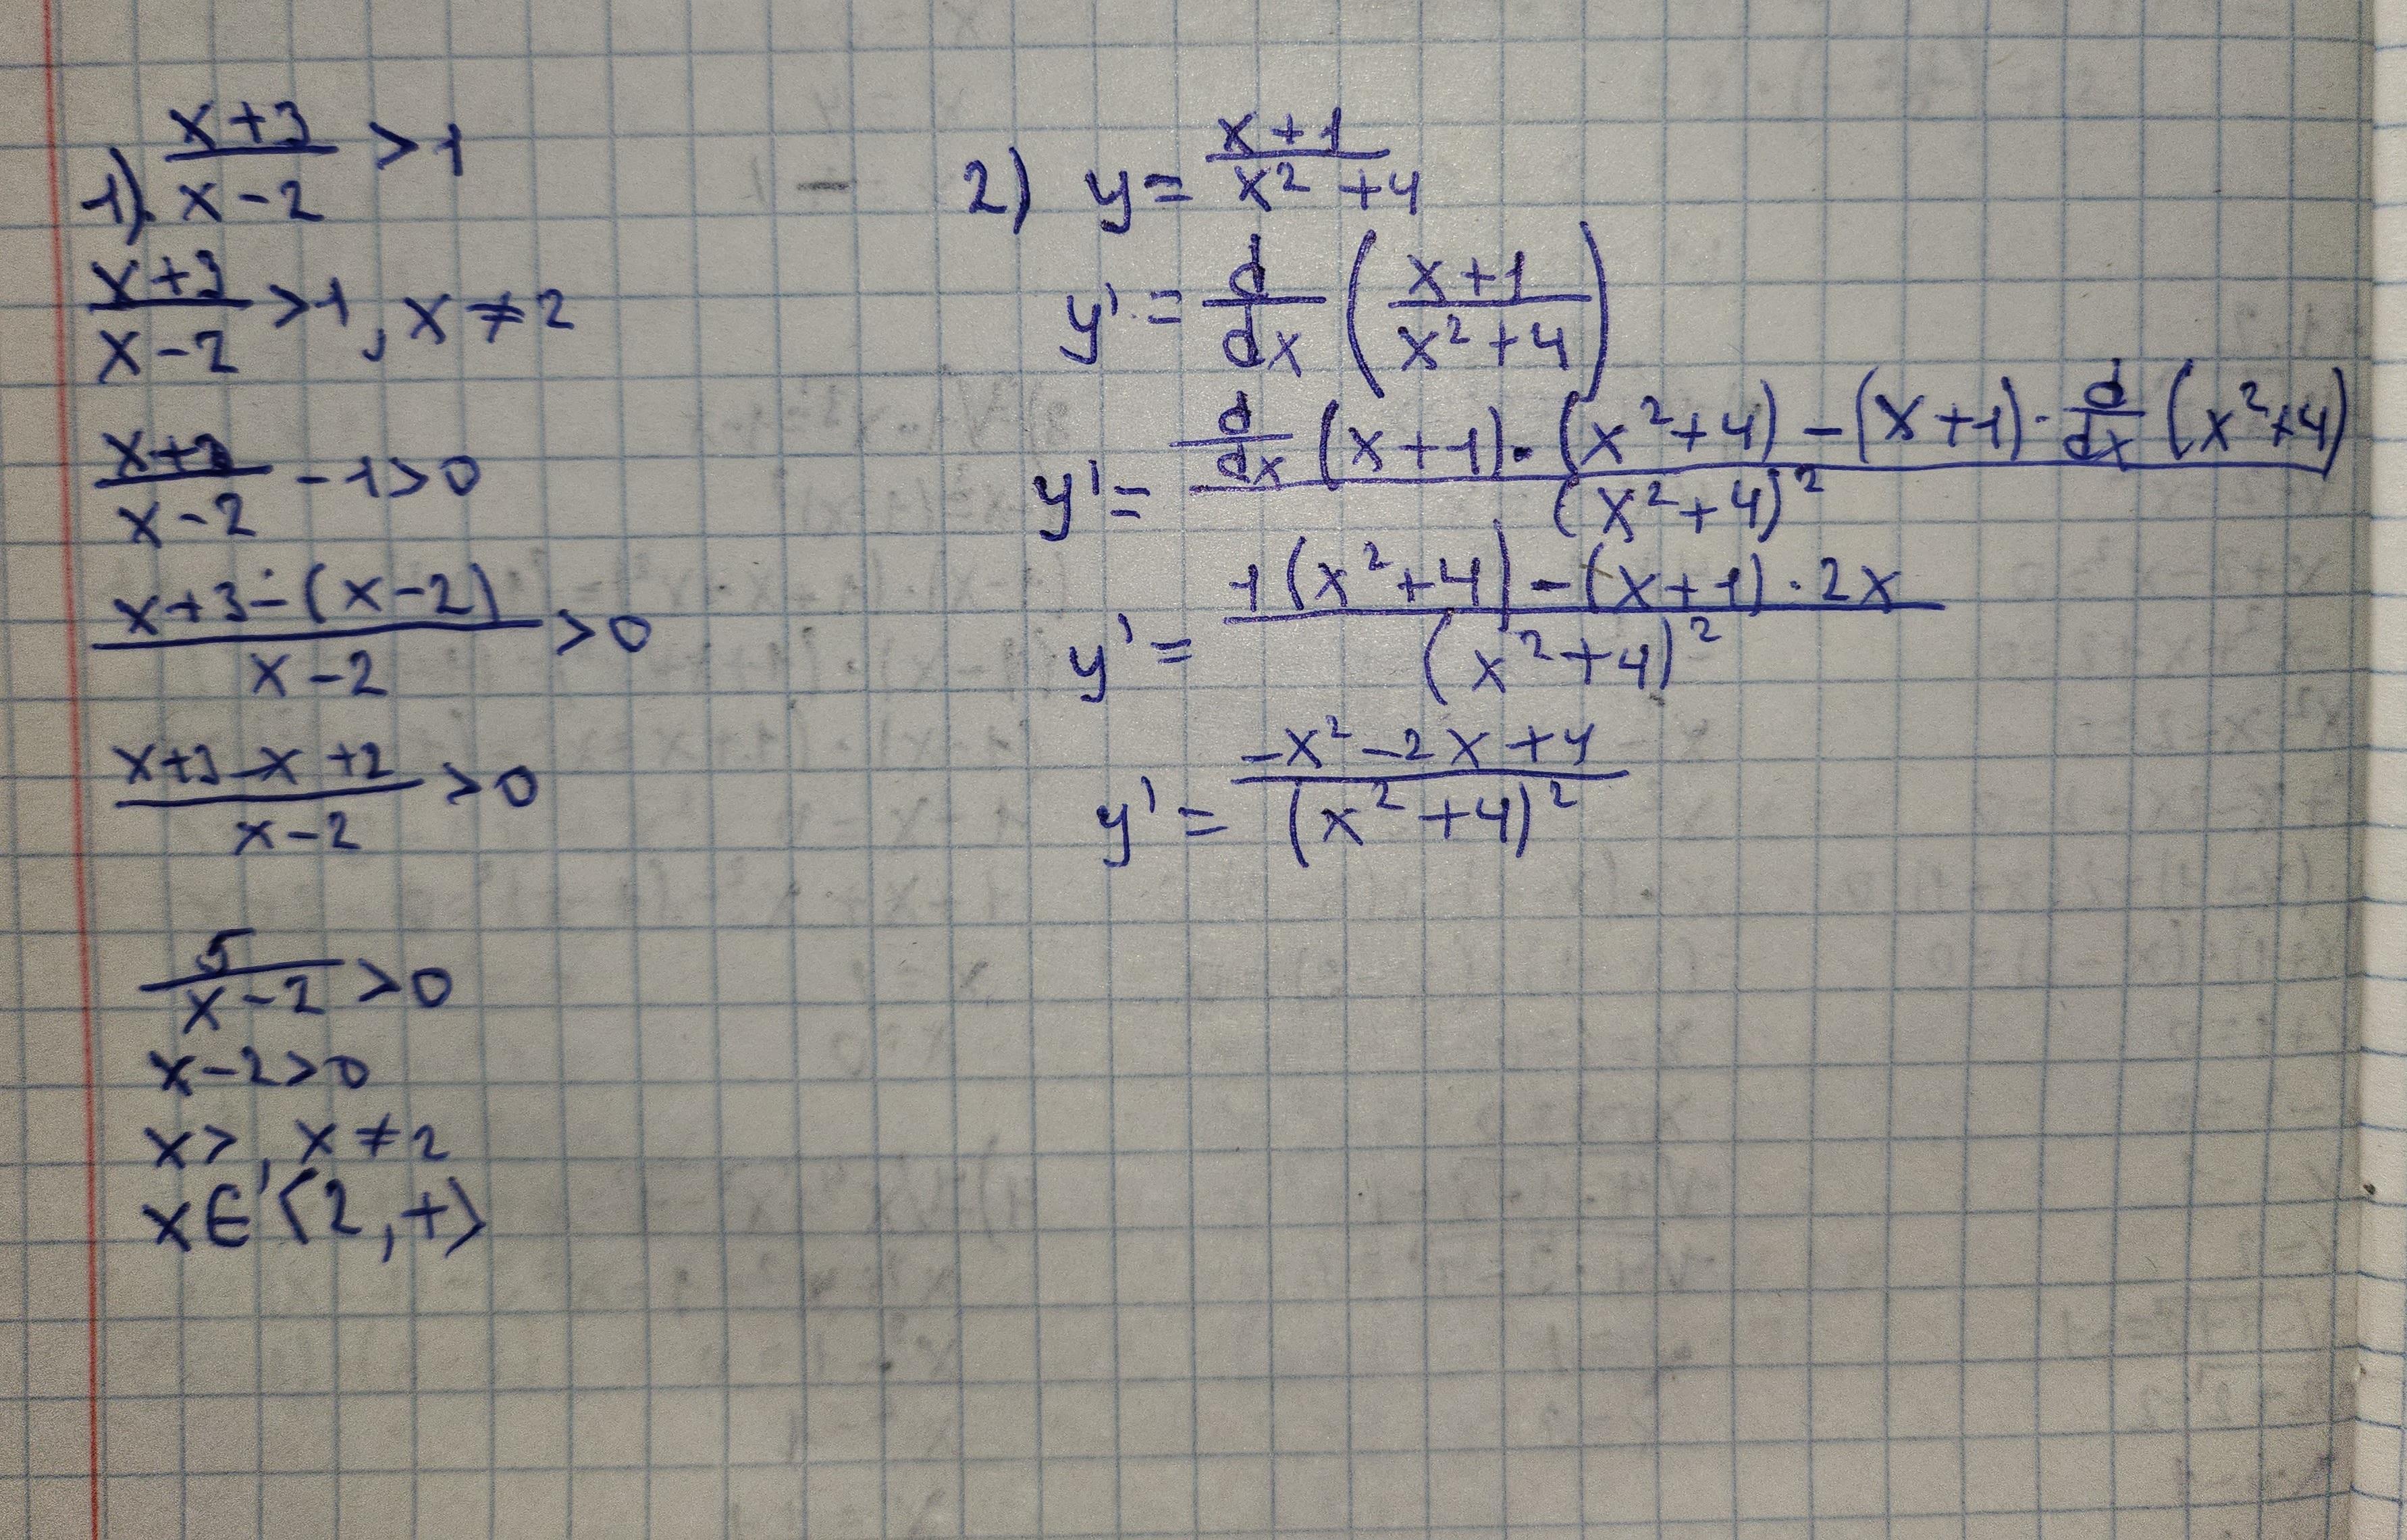 1). (x+3)/(x-2) > 1
(x+3)/(x-2) > 1, x ≠ 2
(x+3)/(x-2) - 1 > 0
(x+3-(x-2))/(x-2) > 0
(x+3-x+2)/(x-2) > 0
5/(x-2) > 0
x-2>0
x>, x ≠ 2
x∈⟨2,+⟩
2) y = (x+1)/(x²+4)
y' = d/dx ((x+1)/(x²+4))
y' = (d/dx (x+1)·(x²+4)-(x+1)·d/dx (x²+4))/(x²+4)²
y' = (1(x²+4)-(x+1)·2x)/(x²+4)²
y' = (-x²-2x+4)/(x²+4)²